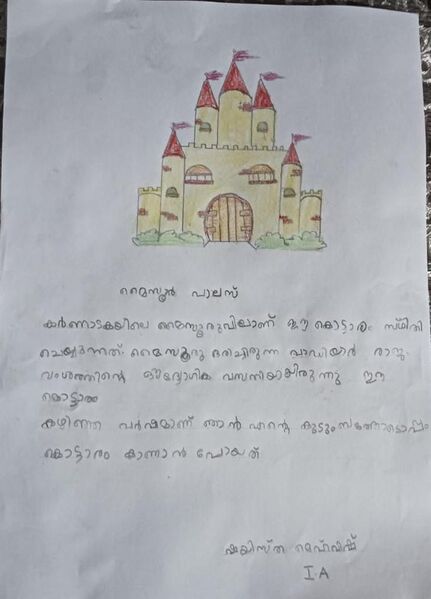 മൈസൂർ പാലസ്
കർണാടകയിലെ മൈസൂരുവിലാണ് ഈ കൊട്ടാരം സ്ഥിതി
ചെയ്യുന്നത്. മൈസൂരു ഭരിച്ചിരുന്ന വാഡിയാർ രാജ
വംശത്തിന്റെ ഔദ്യോഗിക വസതിയായിരുന്നു ഈ
കൊട്ടാരം
കഴിഞ്ഞ വർഷമാണ് ഞാൻ എന്റെ കുടുംബത്തോടൊപ്പം
കൊട്ടാരം കാണാൻ പോയത്
ഷയിസ്ത
I.A